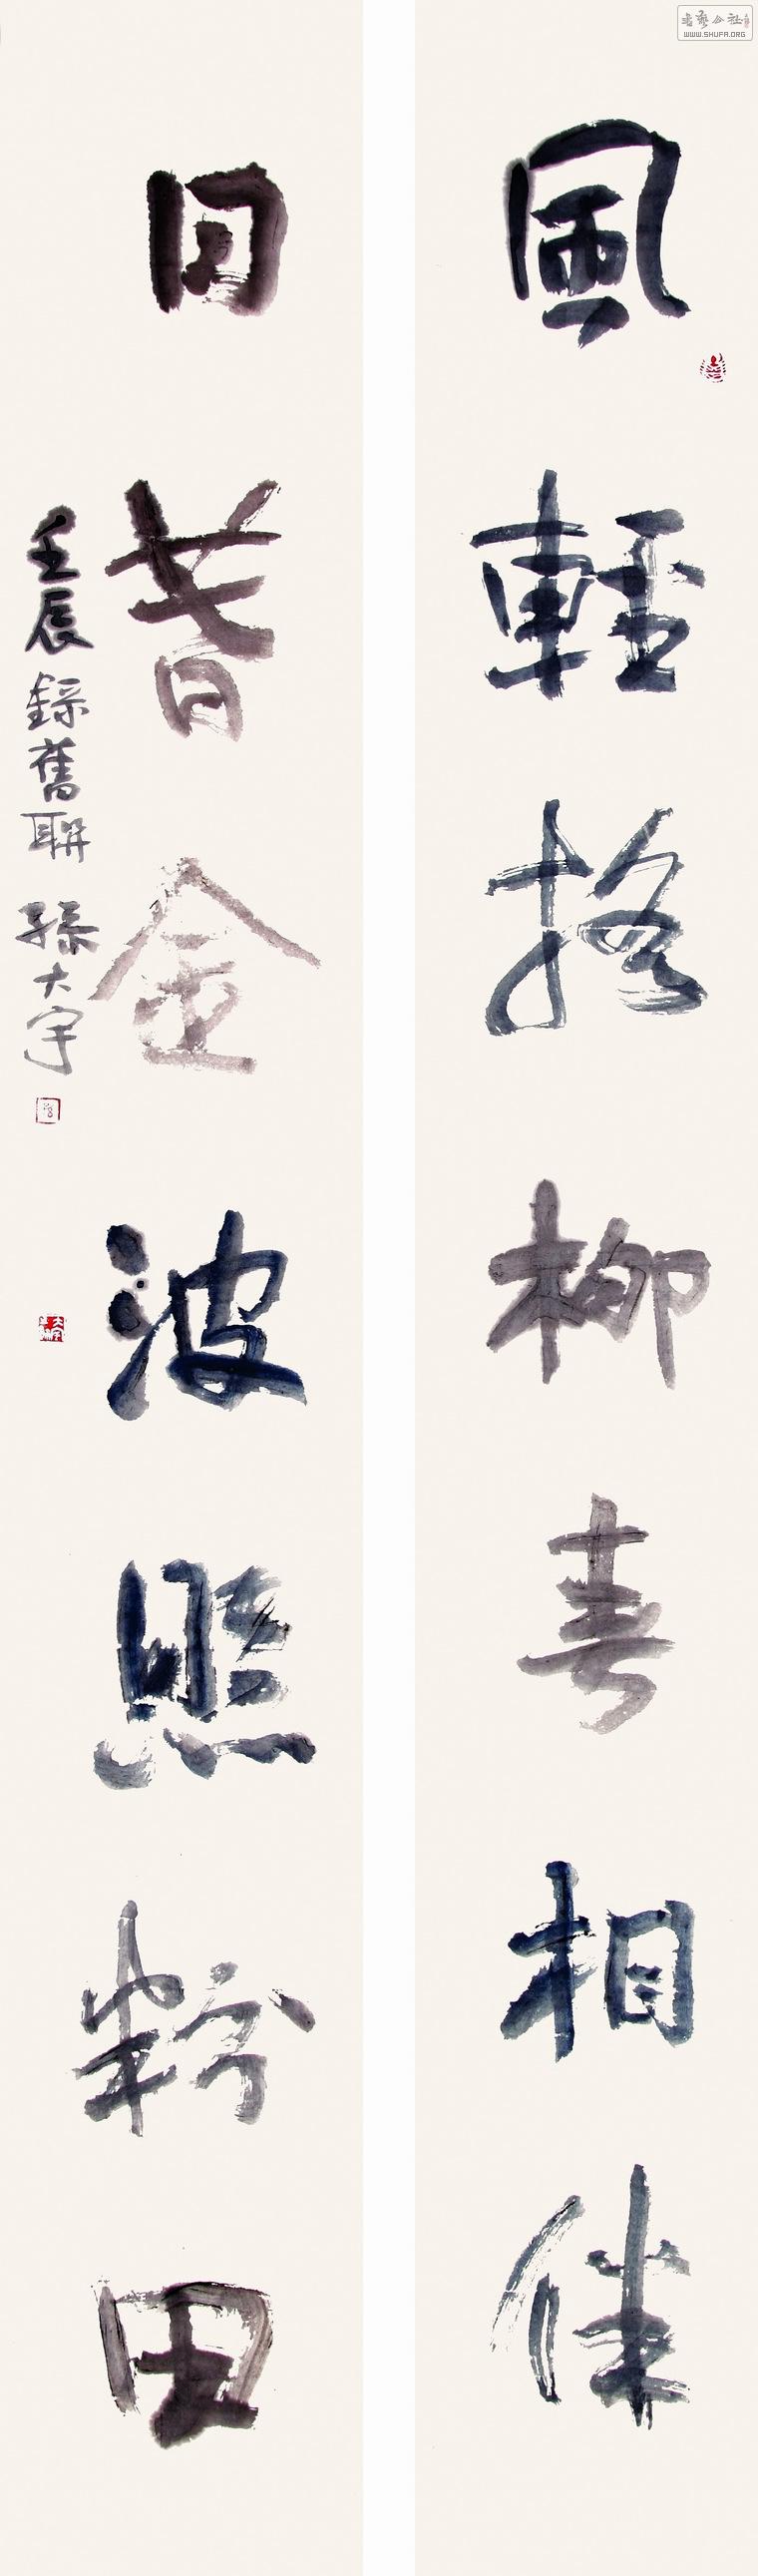 風輕柳相伴
日金波照粉田
壬辰錄舊聯 孫大宇
书藝公社
WWW.SHUFA.ORG